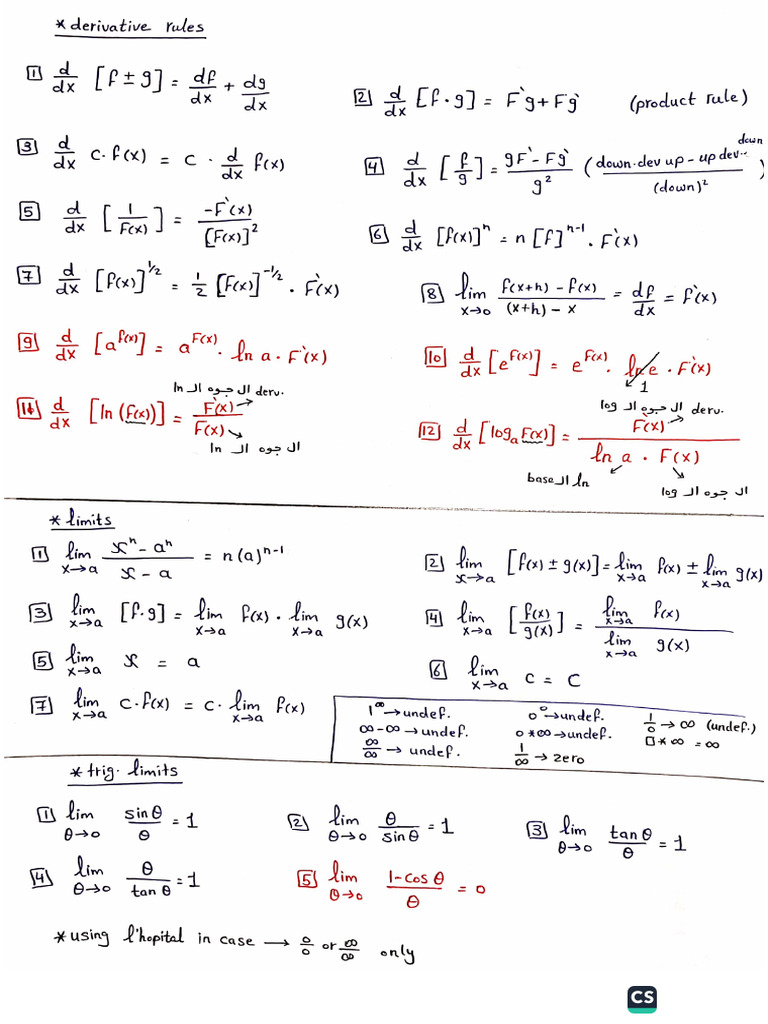 * derivative rules
1 d/dx [f ± g] = df/dx + dg/dx
2 d/dx [f · g] = F`g + Fg` (product rule)
3 d/dx c · f(x) = c · d/dx f(x)
4 d/dx [f/g] = (gF` - Fg`)/g² ((down · dev up - up dev.. down)/(down)²)
5 d/dx [1/F(x)] = -F`(x)/[F(x)]²
6 d/dx [f(x)]ⁿ = n [f]ⁿ⁻¹ · F`(x)
7 d/dx [f(x)]^1/2 = 1/2 [F(x)]^-1/2 · F`(x)
8 lim x→0 (f(x+h) - f(x))/((x+h) - x) = df/dx = f`(x)
9 d/dx [a^f(x)] = a^F(x) · ln a · F`(x)
10 d/dx [e^F(x)] = e^F(x) · ln e · F`(x)
1
ln ال جوه ال derv.
11 d/dx [ln (F(x))] = F`(x)/F(x)
ln ال جوه ال
log ال جوه ال derv.
12 d/dx [logₐ F(x)] = F`(x)/(ln a · F(x))
base ال ln
log ال جوه ال
* limits
1 lim x→a (xⁿ - aⁿ)/(x - a) = n(a)ⁿ⁻¹
2 lim x→a [f(x) ± g(x)] = lim x→a f(x) ± lim x→a g(x)
3 lim x→a [f · g] = lim x→a f(x) · lim x→a g(x)
4 lim x→a [f(x)/g(x)] = lim x→a f(x) / lim x→a g(x)
5 lim x→a x = a
6 lim x→a c = c
7 lim x→a c · f(x) = c · lim x→a f(x)
1^∞ → undef. 0^0 → undef. 1/0 → ∞ (undef.)
∞ - ∞ → undef. 0 * ∞ → undef. □ * ∞ = ∞
∞/∞ → undef. 1/∞ → zero
* trig. limits
1 lim θ→0 sinθ/θ = 1
2 lim θ→0 θ/sinθ = 1
3 lim θ→0 tanθ/θ = 1
4 lim θ→0 θ/tanθ = 1
5 lim θ→0 (1 - cosθ)/θ = 0
* using l'hopital in case → 0/0 or ∞/∞ only
CS